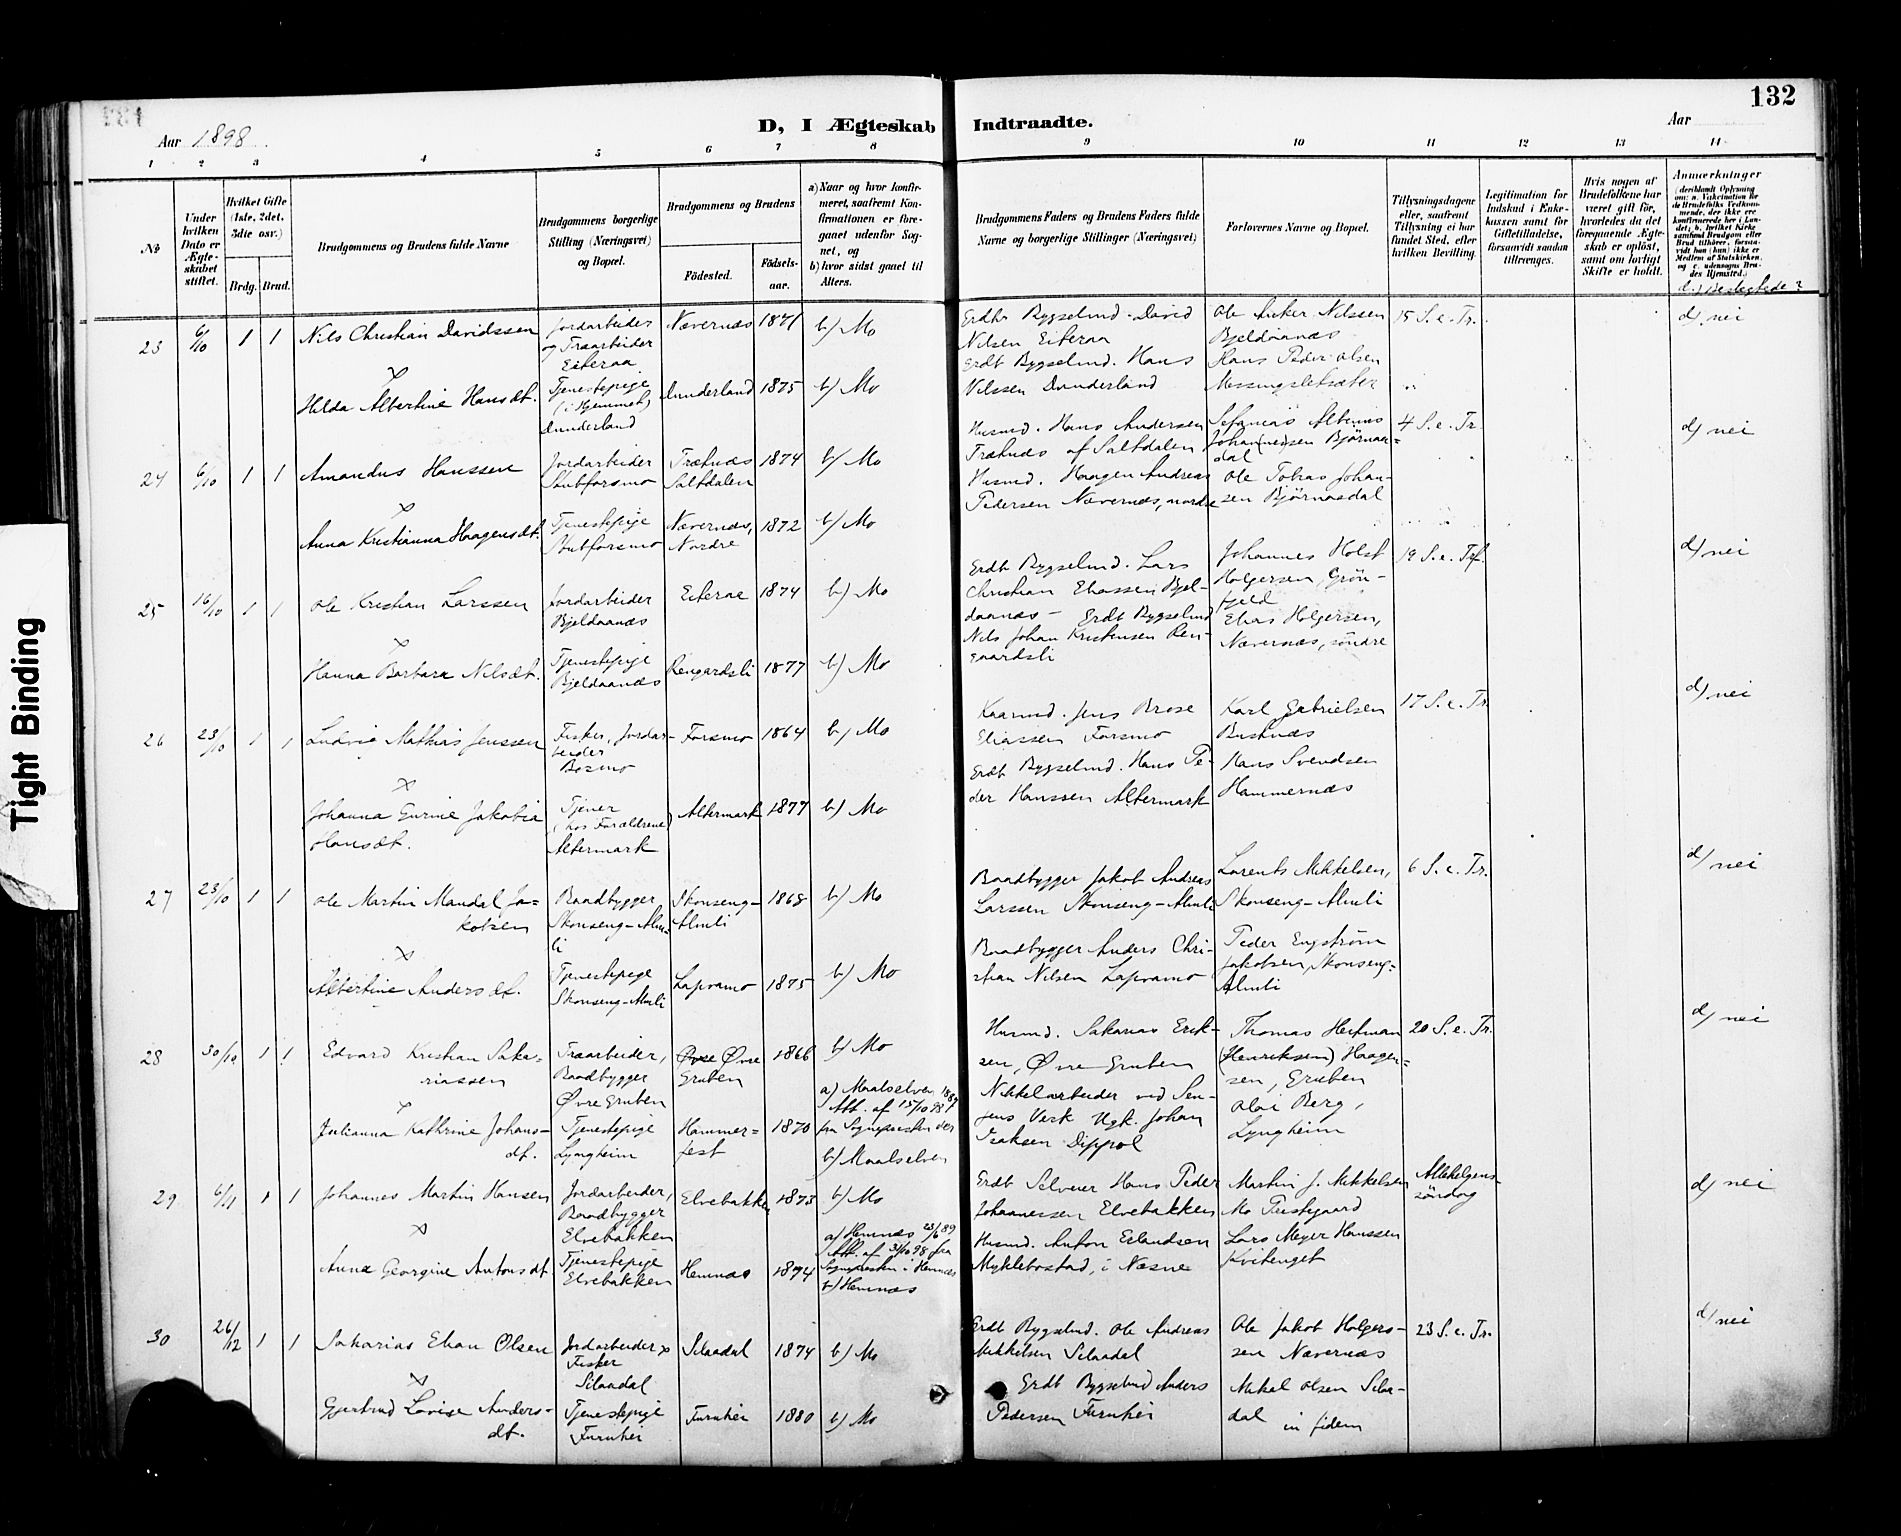 132
Aar 1898.
D, I Ægteskab Indtraadte.
Aar
1 2 3 4 5 6 7 8 9 10 11 12 13 14
No
Under hvilken Dato er Ægteskabet stiftet.
Hvilket Gifte (1ste, 2det, 3die osv.)
Brdg. Brud.
Brudgommens og Brudens fulde Navne
Brudgommens borgerlige Stilling (Næringsvei) og Bopæl.
Brudgommens og Brudens
Födested. Födsels-aar.
a) Naar og hvor konfirmeret, saafremt Konfirmationen er foregaaet udenfor Sognet, og
b) hvor sidst gaaet til Alters.
Brudgommens Faders og Brudens Faders fulde Navne og borgerlige Stillinger (Næringsvei)
Forlovernes Navne og Bopæl.
Tillysningsdagene eller, saafremt Tillysning ei har fundet Sted, efter hvilken Bevilling.
Legitimation for Indskud i Enkekassen samt for Giftetilladelse, forsaavidt saadan tiltrænges.
Hvis nogen af Brudefolkene har været gift för, hvorledes da det foregaaende Ægteskab er oplöst, samt om lovligt Skifte er holdt.
Anmærkninger
23 6/10 1 1 Nils Christian Davidssen
Jordarbeider og Træarbeider Eiteraa
Nævernæs 1871 b) Mo
Erdbr Bygselmd. David Nilsen Eiteraa
Ole Anker Nilssen Bjeldaanæs
15 S. e. Tr.
d/ nei
Hilda Albertine Hansdt.
Tjenestepige (i Hjemmet) Dunderland
Dunderland 1875 b) Mo
Erdb Bygselmd. Hans Nilssen Dunderland
Hans Peder Olsen
24 6/10 1 1 Amandus Hanssen
Jordarbeider Stubforsmo
Træknæs Saltdalen 1874 b) Mo
Husmd. Hans Andersen Træknæs af Saltdalen
4 S. e. Tr
d/ nei
Anna Kristianna Haagensdt.
Tjenestepige Stubforsmo
Nævernæs, Nordre 1872 b) Mo
Husmd. Haagen Andreas Pedersen Nævernæs, nordre
Ole Tobias Johansen Björnaadal
25 16/10 1 1 Ole Kristian Larssen
Jordarbeider Bjeldaanæs
Eiteraa 1874 b) Mo
Erdb Bygselmd. Lars Christian Eliassen Bjeldaanæs
Johannes Holst Holgersen, Grönfjeld
19 S. e. Trf.
d/ nei
Hanna Barbara Nilsdt.
Tjenestepige Bjeldaanæs
Rengardsli 1877 b) Mo
Erdb Bygselmd Nils Johan Kristensen Rengaardsli
Elias Holgersen, Nævernæs, söndre
26 23/10 1 1 Ludvig Mathias Jenssen
Fisker, Jordarbeider Bosmo
Forsmo 1864 b) Mo
Kaarmd. Jens Brose Eliassen Forsmo
Karl Gabrielsen Busknæs
17 S. e. Tr.
d/ nei
Johanna Enrine Jakobia Hansdt.
Tjener (hos Forældrene) Altermark
Altermark 1877 b) Mo
Erdb Bygselmd. Hans Peder Hanssen Altermark
Hans Svendsen Hammernæs
27 23/10 1 1 Ole Martin Mandal Jakobsen
Baadbygger Skonseng-Almli
Skonseng-Almli 1868 b) Mo
Baadbygger Jakob Andreas Larssen Skonseng-Almli
Lorents Mikkelsen, Skonseng-Almli
6 S. e. Tr.
d/ nei
Albertine Andersdt.
Tjenestepige Skonseng-Almli
Lapvamo 1875 b) Mo
Baadbygger Anders Christian Nilsen Lapvamo
Peder Engström Jakobsen, Skonseng-Almli
28 30/10 1 1 Edvard Kristian Sakariassen
Træarbeider, Baadbygger Övre Gruben
Övre Gruben 1866 b) Mo
Husmd. Sakarias Eriksen, Övre Gruben
Thomas Heitman (Henriksen) Haagensen, Gruben
20 S. e. Tr.
d/ nei
Julianna Kathrine Johansdt.
Tjenestepige Lyngheim
Hammerfest 1870
a) Maalselven 1887 Att. af 15/10 98 fra Sognepresten der
b) Maalselven
Nikkelarbeider ved Senjens Verk Ugk. Johan Isaksen Dippol
Olai Berg, Lyngheim
29 6/11 1 1 Johannes Martin Hansen
Jordarbeider, Baadbygger Elvebakken
Elvebakken 1873 b) Mo
Erdb Selveier Hans Peder Johannessen Elvebakken
Martin J. Mikkelsen Mo Prestgaard
Allehelgens söndag
d/ nei
Anna Georgine Antonsdt
Tjenestepige Elvebakken
Hemnæs 1874
a) Hemnæs 23/6 89 Att. af 31/10 98 fra Sognepresten i Hemnæs
b) Hemnæs
Husmd. Anton Erlandsen Myklebostad, i Næsne
Lars Meyer Hanssen Kvitenget
30 26/12 1 1 Sakarias Elian Olsen
Jordarbeider Fisker Silaadal
Silaadal 1874 b) Mo
Erdb Bygselmd. Ole Andreas Mikkelsen Silaadal
Ole Jakob Holgersen Nævernæs
23 S. e. Tr.
d/ nei
Gjertrud Lovise Andersdt.
Tjenestepige Furuhei
Furuhei 1880 b) Mo
Erdb Bygselmd Anders Pedersen Furuhei
Mikal Olsen Silaadal
in fidem
Tight Binding